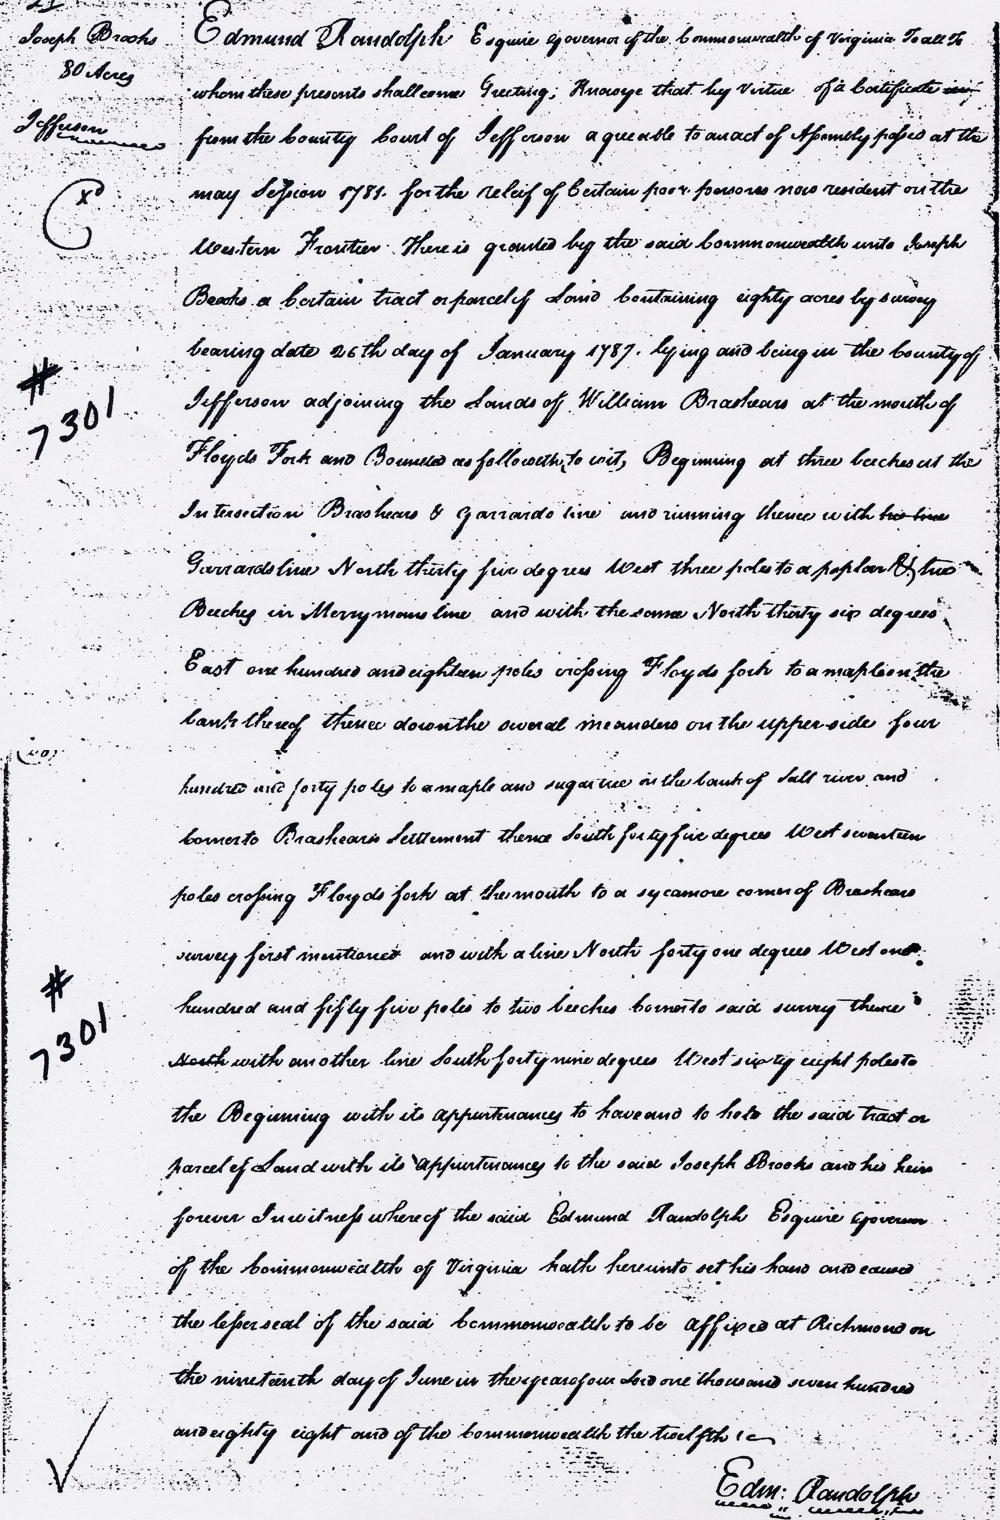 Joseph Brooks
80 Acres
Jefferson
Xd
Edmund Randolph Esquire Governor of the Commonwealth of Virginia To all to
whom these presents shall come Greeting; Know ye that by Virtue of a Certificate in
from the County Court of Jefferson agreeable to an act of Assembly passed at the
may Session 1781. for the relief of Certain poor persons now resident on the
Western Frontier There is granted by the said Commonwealth unto Joseph
Brooks a Certain tract or parcel of Land Containing eighty acres by survey
bearing date 26th day of January 1787. lying and being in the County of
Jefferson adjoining the Lands of William Brashears at the mouth of
# 7301
Floyds Fork and Bounded as followeth, to wit, Beginning at three beeches at the
Intersection Brashears & Garrards line and running thence with his line
Garrards line North thirty five degrees West three poles to a poplar & two
Beeches in Merrymans line and with the same North thirty six degrees
East one hundred and eighteen poles crossing Floyds fork to a maple on the
bank thereof thence down the several meanders on the upper side four
hundred and forty poles to a maple and sugar tree on the bank of Salt river and
Corner to Brashears Settlement thence South forty five degrees West seventeen
poles crossing Floyds fork at the mouth to a sycamore corner of Brashears
survey first mentioned and with a line North forty one degrees West one
hundred and fifty five poles to two beeches Corner to said survey thence
# 7301
North with another line South forty nine degrees West sixty eight poles to
the Beginning with its appurtenances to have and to hold the said tract or
parcel of Land with its appurtenances to the said Joseph Brooks and his heirs
forever In witness whereof the said Edmund Randolph Esquire Governor
of the Commonwealth of Virginia hath hereunto set his hand and caused
the lesser seal of the said Commonwealth to be affixed at Richmond on
the nineteenth day of June in the year of our Lord one thousand seven hundred
and eighty eight and of the Commonwealth the twelfth
Edm: Randolph